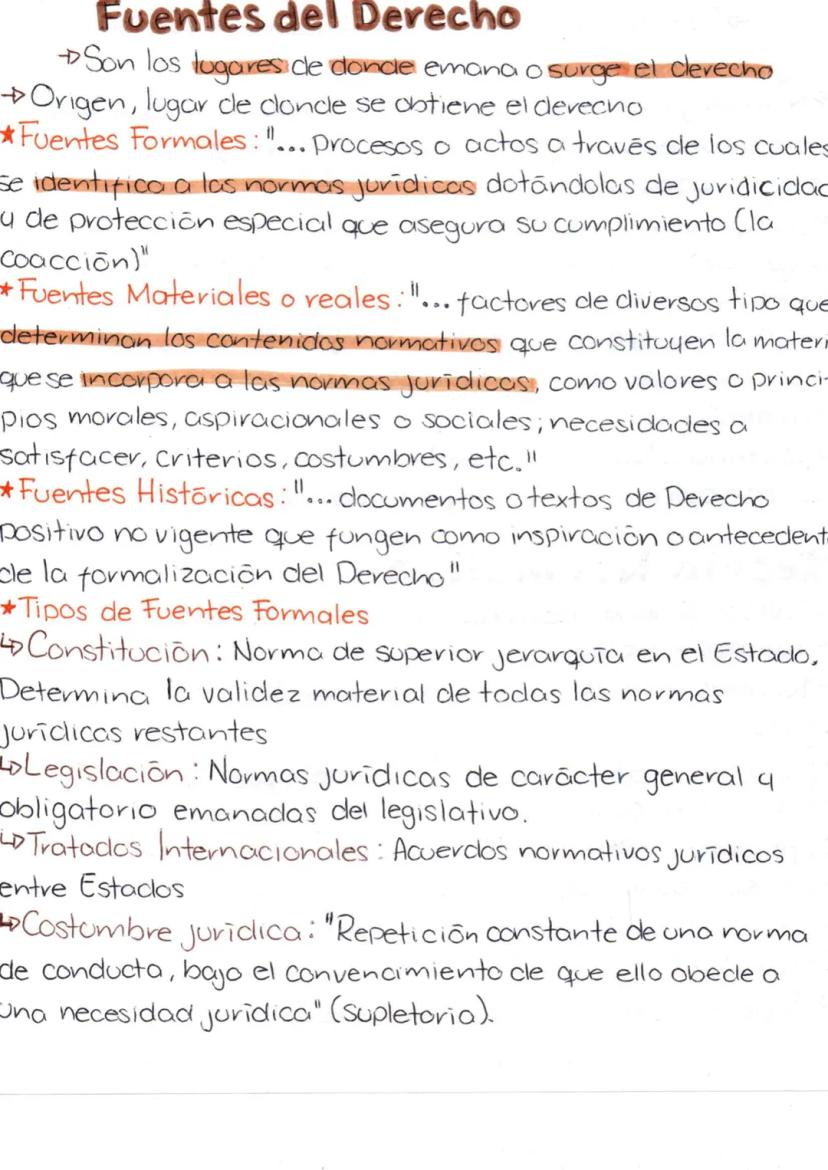 Fuentes del Derecho
→Son los lugares de donde emana o surge el derecho
→Origen, lugar de donde se obtiene el derecho
★Fuentes Formales: "... Procesos o actos a través de los cuales
se identifica a las normas jurídicas dotándolas de juridicidad
y de protección especial que asegura su cumplimiento (la
coacción)"
★Fuentes Materiales o reales: "... factores de diversos tipo que
determinan los contenidos normativos que constituyen la materi
que se incorpora a las normas jurídicas, como valores o princi-
pios morales, aspiracionales o sociales; necesidades a
satisfacer, criterios, costumbres, etc."
★Fuentes Históricas: "... documentos o textos de Derecho
positivo no vigente que fungen como inspiración o antecedent
de la formalización del Derecho"
★Tipos de Fuentes Formales
↳Constitución: Norma de superior jerarquía en el Estado,
Determina la validez material de todas las normas
jurídicas restantes
↳Legislación: Normas jurídicas de carácter general y
obligatorio emanadas del legislativo.
↳Tratados Internacionales: Acuerdos normativos jurídicos
entre Estados
↳Costumbre jurídica: "Repetición constante de una norma
de conducta, bajo el convencimiento de que ello obedece a
una necesidad jurídica" (Supletoria).